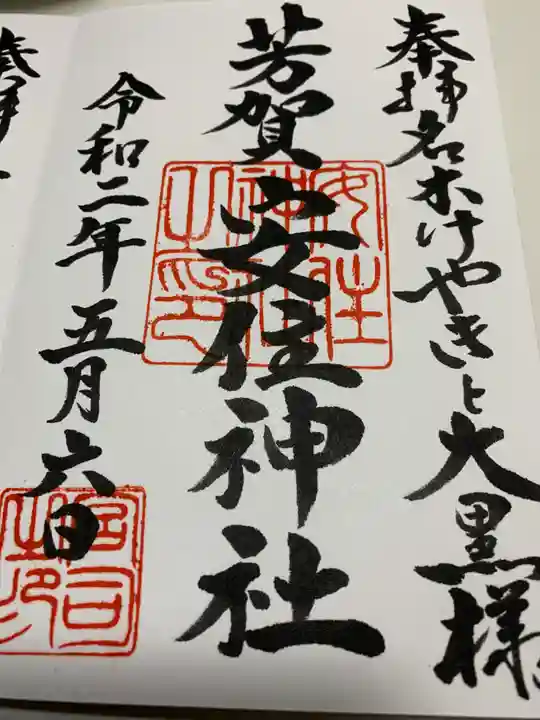 奉拝 名木けやきと大黒様
芳賀安住神社
安住神社之印
令和二年五月六日
宮司之印
奉拝